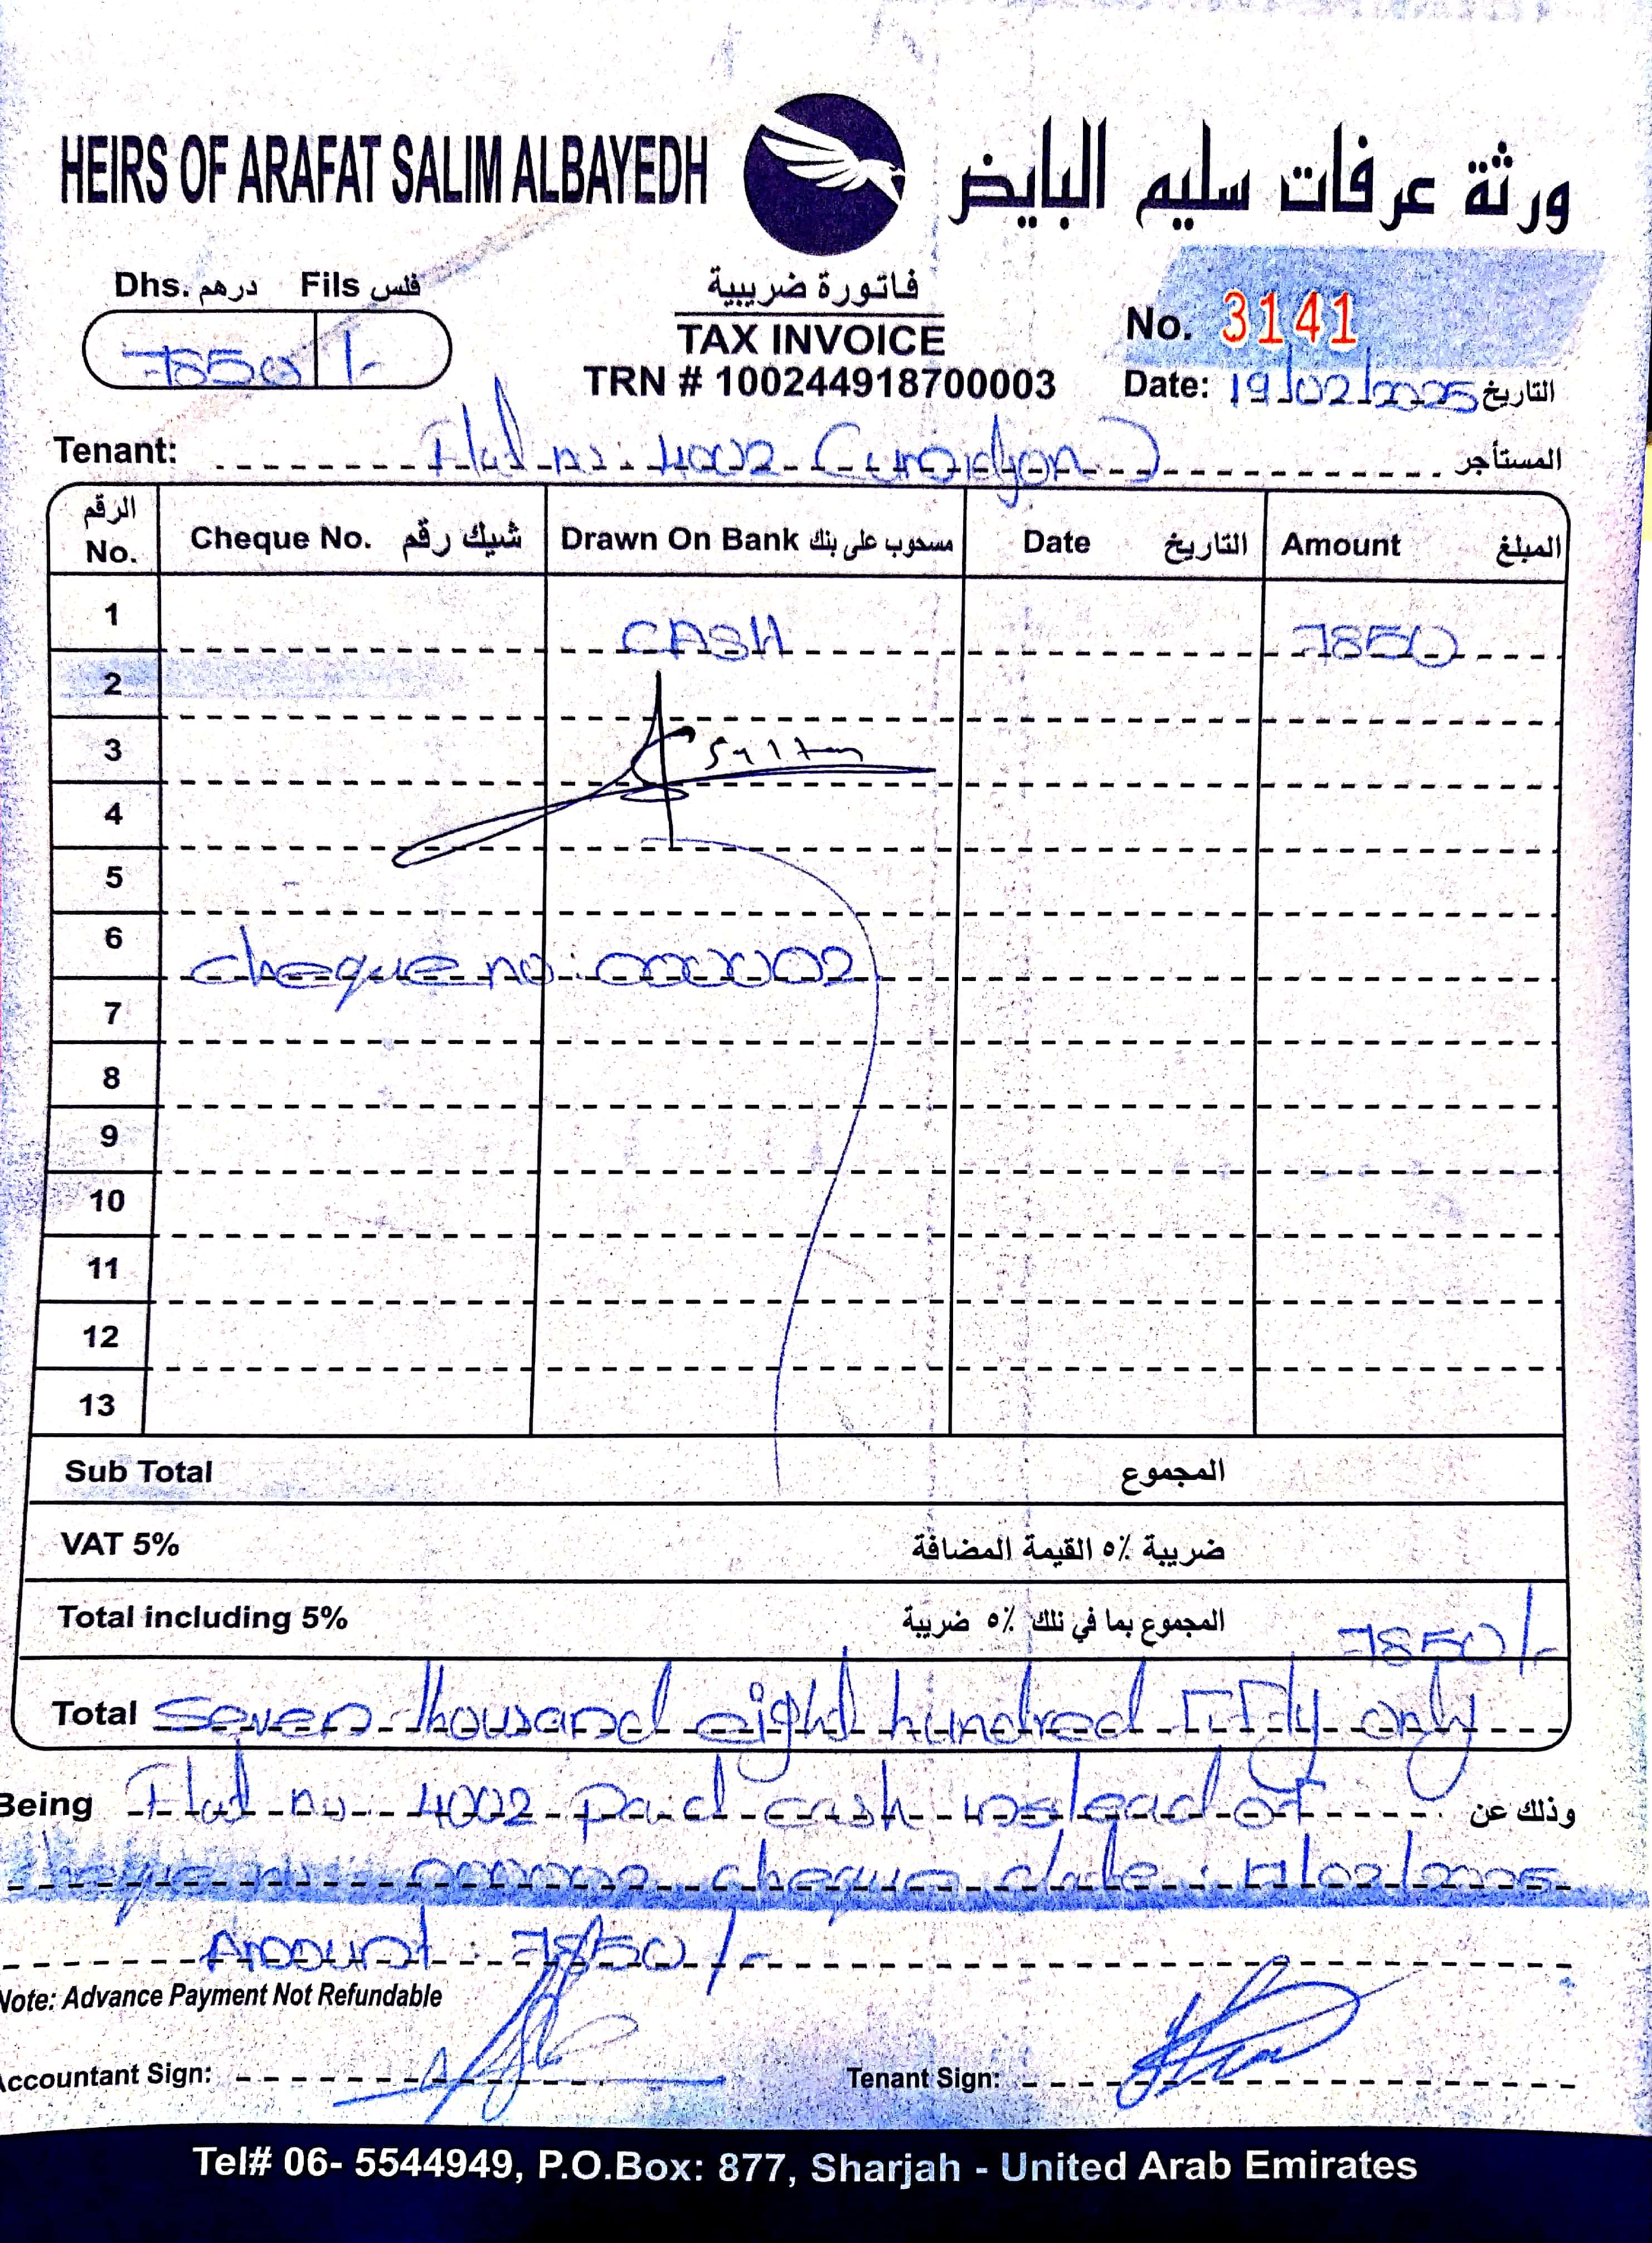 HEIRS OF ARAFAT SALIM ALBAYEDH ورثة عرفات سليم البايض
Dhs. درهم Fils فلس
7850 /-
فاتورة ضريبية
TAX INVOICE
TRN # 100244918700003
No. 3141
Date: 19/02/2025 التاريخ
Tenant: Flat no: 4002 المستأجر
الرقم No. Cheque No. شيك رقم Drawn On Bank مسحوب على بنك Date التاريخ Amount المبلغ
1 CASH 7850
2
3 Sultan
4
5
6 cheque no: 000002
7
8
9
10
11
12
13
Sub Total المجموع
VAT 5% ضريبة ٥٪ القيمة المضافة
Total including 5% المجموع بما في ذلك ٥٪ ضريبة 7850/-
Total Seven thousand eight hundred Fifty only
Being Flat no: 4002 paid cash instead of وذلك عن
cheque no: 000002 cheque date: 17/02/2025
Amount: 7850/-
Note: Advance Payment Not Refundable
Accountant Sign: Tenant Sign:
Tel# 06- 5544949, P.O.Box: 877, Sharjah - United Arab Emirates